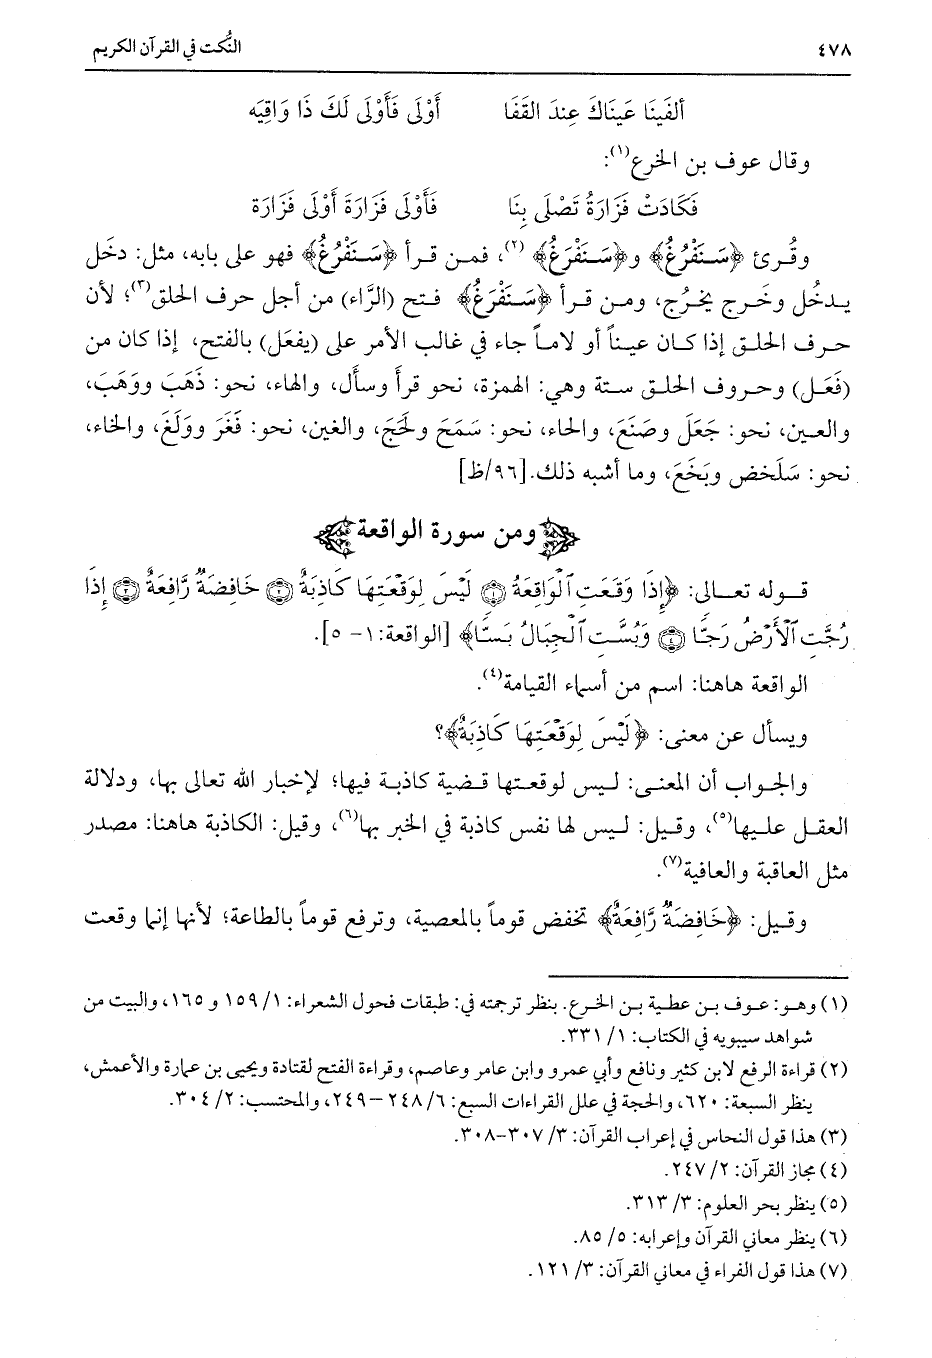 ٤٧٨ النُّكت في القرآن الكريم
ألفَينَا عَينَاكَ عِندَ القَفَا أَوْلَى فَأَوْلَى لَكَ ذَا وَاقِيَه
وقال عوف بن الخرع(١):
فَكَادَتْ فَزَارَةُ تَصْلَى بِنَا فَأَوْلَى فَزَارَةَ أَوْلَى فَزَارَة
وقُرئ ﴿سَنَفْرُغُ﴾ و﴿سَنَفْرَغُ﴾ (٢)، فمن قرأ ﴿سَنَفْرُغُ﴾ فهو على بابه، مثل: دخَل
يدخُل وخَرج يخرُج، ومن قرأ ﴿سَنَفْرَغُ﴾ فتح (الرَّاء) من أجل حرف الحلق(٣)؛ لأن
حرف الحلق إذا كان عيناً أو لاماً جاء في غالب الأمر على (يفعَل) بالفتح، إذا كان من
(فَعَل) وحروف الحلق ستة وهي: الهمزة، نحو قرأ وسأَل، والهاء، نحو: ذَهَبَ ووَهَبَ،
والعين، نحو: جَعَلَ وصَنَعَ، والحاء، نحو: سَمَحَ ولَحَجَ، والغين، نحو: فَغَرَ ووَلَغَ، والخاء،
نحو: سَلَخض وبَخَعَ، وما أشبه ذلك.[٩٦/ظ]
ومن سورة الواقعة
قوله تعالى: ﴿إِذَا وَقَعَتِ ٱلْوَاقِعَةُ ١ لَيْسَ لِوَقْعَتِهَا كَاذِبَةٌ ٢ خَافِضَةٌ رَّافِعَةٌ ٣ إِذَا
رُجَّتِ ٱلْأَرْضُ رَجًّا ٤ وَبُسَّتِ ٱلْجِبَالُ بَسًّا﴾ [الواقعة:١- ٥].
الواقعة هاهنا: اسم من أسماء القيامة(٤).
ويسأل عن معنى: ﴿لَيْسَ لِوَقْعَتِهَا كَاذِبَةٌ﴾؟
والجواب أن المعنى: ليس لوقعتها قضية كاذبة فيها؛ لإخبار الله تعالى بها، ودلالة
العقل عليها(٥)، وقيل: ليس لها نفس كاذبة في الخبر بها(٦)، وقيل: الكاذبة هاهنا: مصدر
مثل العاقبة والعافية(٧).
وقيل: ﴿خَافِضَةٌ رَّافِعَةٌ﴾ تخفض قوماً بالمعصية، وترفع قوماً بالطاعة؛ لأنها إنما وقعت
(١) وهو: عوف بن عطية بن الخرع. ينظر ترجمته في: طبقات فحول الشعراء: ١/ ١٥٩ و ١٦٥، والبيت من
شواهد سيبويه في الكتاب: ١/ ٣٣١.
(٢) قراءة الرفع لابن كثير ونافع وأبي عمرو وابن عامر وعاصم، وقراءة الفتح لقتادة ويحيى بن عمارة والأعمش،
ينظر السبعة: ٦٢٠، والحجة في علل القراءات السبع: ٦/ ٢٤٨ –٢٤٩، والمحتسب: ٢/ ٣٠٤.
(٣) هذا قول النحاس في إعراب القرآن: ٣/ ٣٠٧-٣٠٨.
(٤) مجاز القرآن: ٢/ ٢٤٧.
(٥) ينظر بحر العلوم: ٣/ ٣١٣.
(٦) ينظر معاني القرآن وإعرابه: ٥/ ٨٥.
(٧) هذا قول الفراء في معاني القرآن: ٣/ ١٢١.